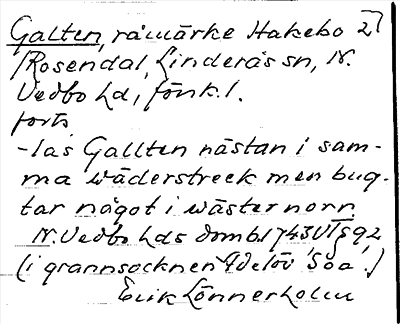 Galten, råmärke Hakebo 2
/Rosendal, Linderås sn, N.
Vedbo hd, Jönk.l.
forts
-las Gallten nästan i sam-
ma wäderstreck men bug-
tar något i wäster norr.
N. Vedbo hds domb 1743 VT § 92
(i grannsocknen Adelöv Söa.)
Erik Lönnerholm